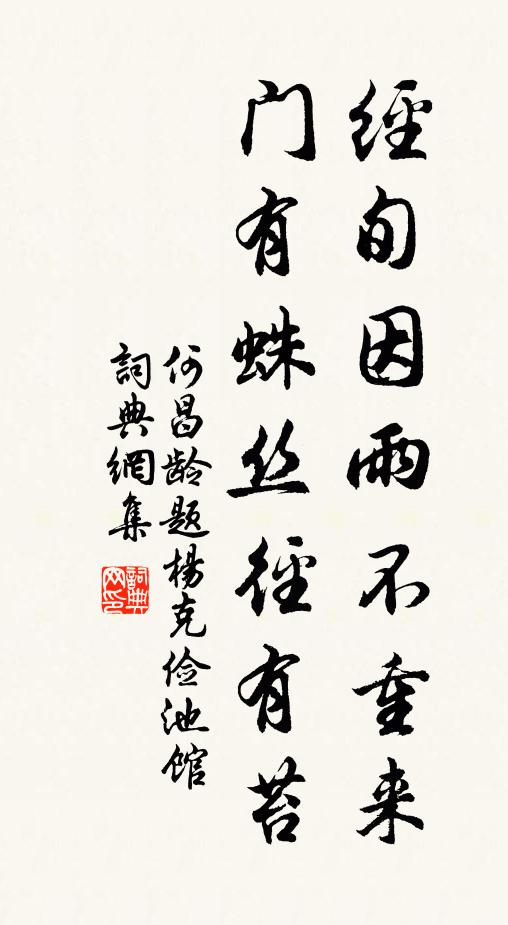 經旬因雨不重来
门有蛛丝径有苔
何昌龄题楊克俭池馆
詞典網集
詞典网印